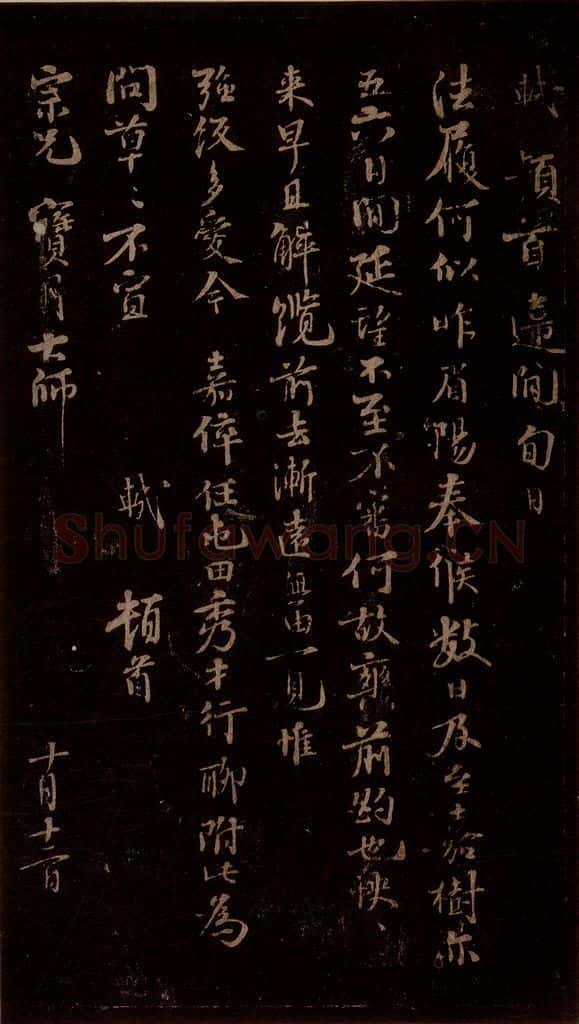 軾頓首違間旬日
法履何似昨眉陽奉候數日及至嘉樹亦
五六日間延望不至不審何故爽前約也快快
來早且解纜前去漸遠無由一見惟
強飯多愛今嘉倅任屯田秀才行聊附此為
問草草不宣
軾頓首
宗兄寶月大師
十月十二日
Shufawang.CN